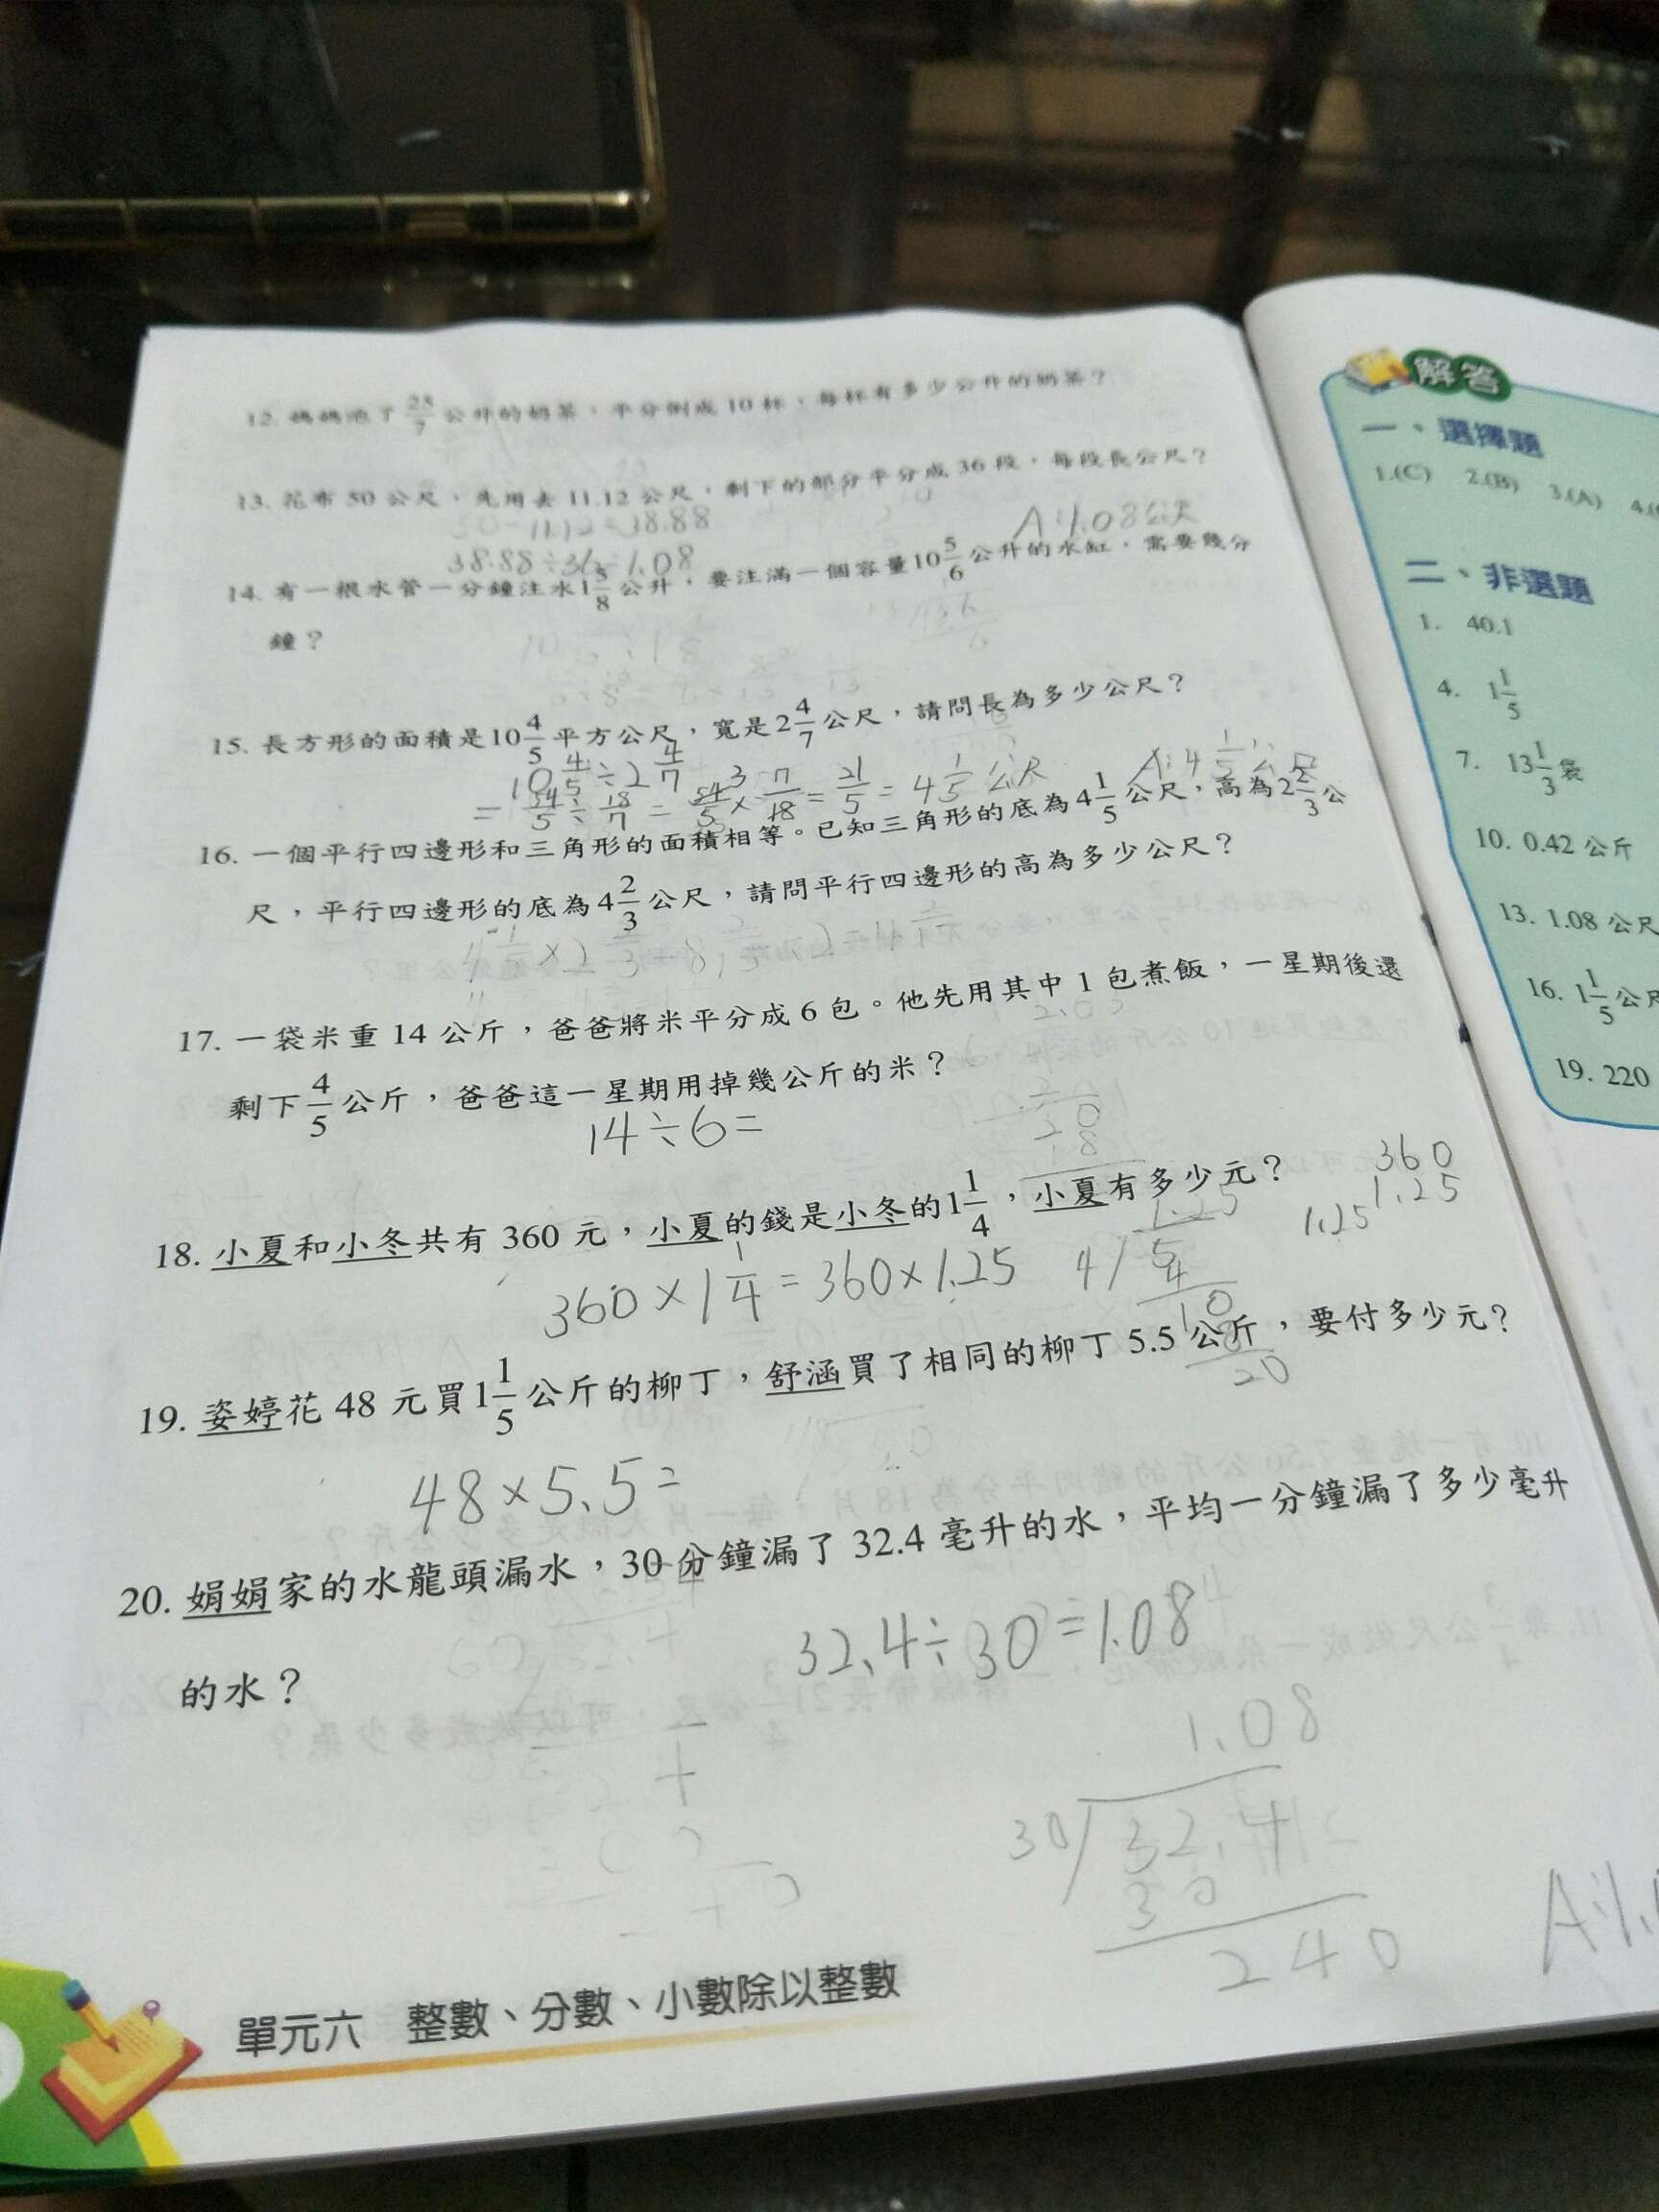 12. 媽媽泡了25/7公升的奶茶，平分倒成 10 杯，每杯有多少公升的奶茶？
13. 花布 50 公尺，先用去 11.12 公尺，剩下的部分平分成 36 段，每段長公尺？
50-11.12=38.88
38.88÷36=1.08
A:1.08公尺
14. 有一根水管一分鐘注水1 5/8公升，要注滿一個容量10 5/6公升的水缸，需要幾分
鐘？
15. 長方形的面積是10 4/5平方公尺，寬是2 4/7公尺，請問長為多少公尺？
10 4/5÷2 4/7
=54/5÷18/7=54/5×7/18=21/5=4 1/5公尺
A:4 1/5公尺
16. 一個平行四邊形和三角形的面積相等。已知三角形的底為4 1/5公尺，高為2 2/3公
尺，平行四邊形的底為4 2/3公尺，請問平行四邊形的高為多少公尺？
17. 一袋米重 14 公斤，爸爸將米平分成 6 包。他先用其中 1 包煮飯，一星期後還
剩下4/5公斤，爸爸這一星期用掉幾公斤的米？
14÷6=
18. 小夏和小冬共有 360 元，小夏的錢是小冬的1 1/4，小夏有多少元？
360×1 1/4=360×1.25
1.25
4/5
4
10
8
20
360
1.25
1.25
19. 姿婷花 48 元買1 1/5公斤的柳丁，舒涵買了相同的柳丁 5.5 公斤，要付多少元？
48×5.5=
20. 娟娟家的水龍頭漏水，30 分鐘漏了 32.4 毫升的水，平均一分鐘漏了多少毫升
的水？
32.4÷30=1.08
1.08
30/32.4
30
240
單元六 整數、分數、小數除以整數
解答
一、選擇題
1.(C) 2.(B) 3.(A)
二、非選擇題
1. 40.1
4. 1 1/5
7. 13 1/3袋
10. 0.42 公斤
13. 1.08 公尺
16. 1 1/5公尺
19. 220